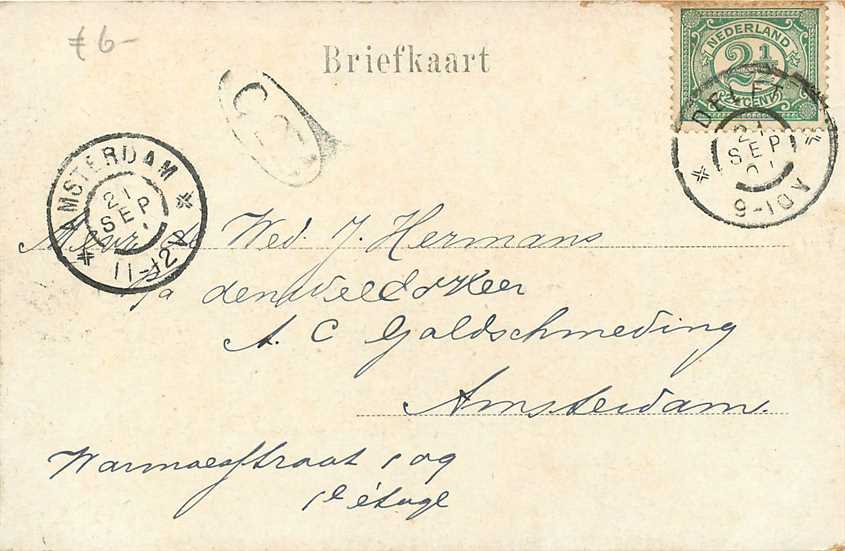 ƒ 6-
Briefkaart
NEDERLAND
2½
CENT
DELFT
21
SEP
01
9-10V
AMSTERDAM
21
SEP
11-12V
Mevr. de Wed. J. Hermans
p/a den WelEd. Heer
A. C Goldschmeding
Amsterdam.
Warmoesstraat 109
1e étage